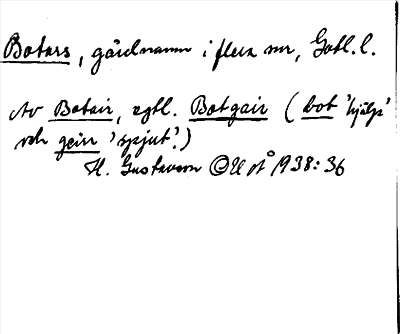 Botars, gårdnamn i flera snr, Gotl. l.
Av Botair, egtl. Botgair (bot 'hjälp'
och geirr 'spjut'.)
H. Gustavson GUÅ 1938:36